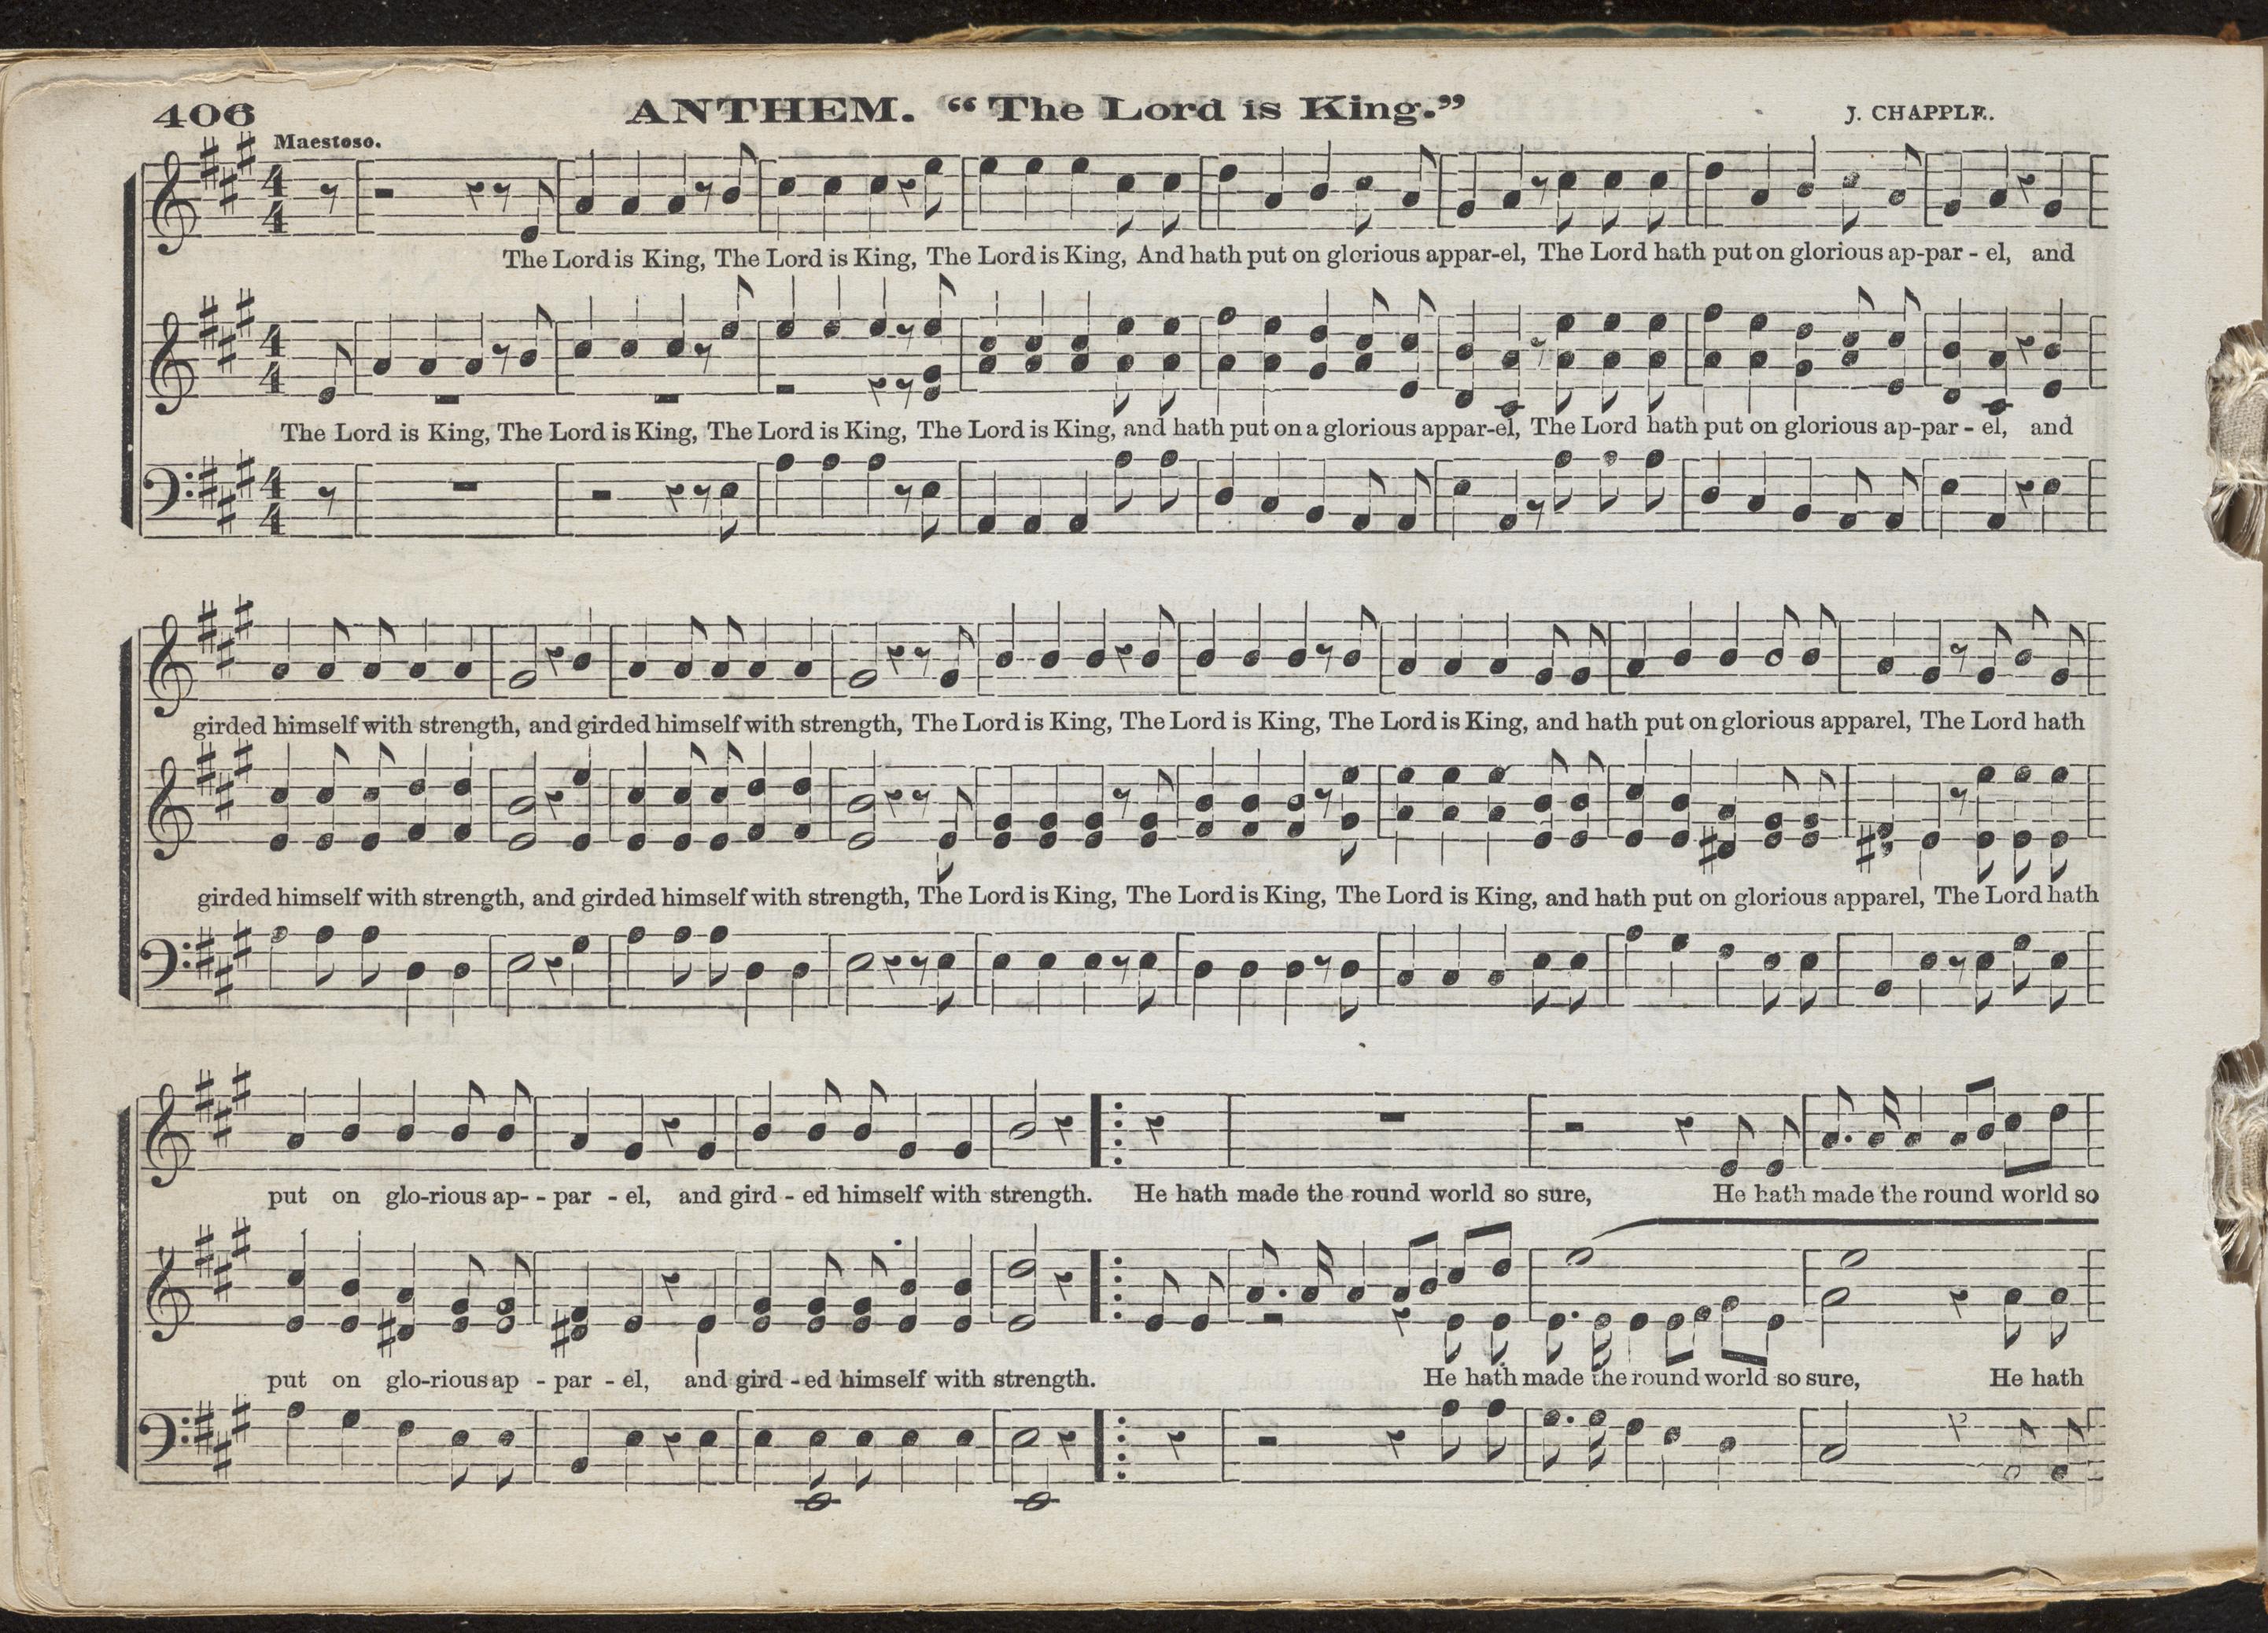 406
ANTHEM. “The Lord is King.”
J. CHAPPLE.
Maestoso.
4 4
The Lord is King, The Lord is King, The Lord is King, And hath put on glorious appar-el, The Lord hath put on glorious ap-par - el, and
4 4
The Lord is King, The Lord is King, The Lord is King, The Lord is King, and hath put on a glorious appar-el, The Lord hath put on glorious ap-par - el, and
4 4
girded himself with strength, and girded himself with strength, The Lord is King, The Lord is King, The Lord is King, and hath put on glorious apparel, The Lord hath
girded himself with strength, and girded himself with strength, The Lord is King, The Lord is King, The Lord is King, and hath put on glorious apparel, The Lord hath
put on glo-rious ap- - par - el, and gird - ed himself with strength. He hath made the round world so sure, He hath made the round world so
put on glo-rious ap - par - el, and gird - ed himself with strength. He hath made the round world so sure, He hath